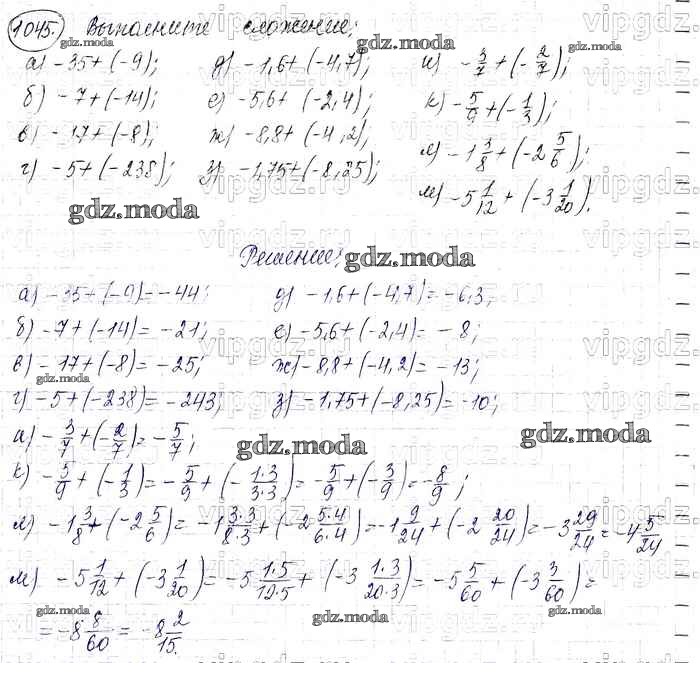 1045. Выполните сложение;
а) -35+(-9); д) -1,6+(-4,7); и) -3/7+(-2/7);
б) -7+(-14); е) -5,6+(-2,4); к) -5/9+(-1/3);
в) -17+(-8); ж) -8,8+(-4,2); л) -1 3/8+(-2 5/6);
г) -5+(-238); з) -1,75+(-8,25); м) -5 1/12+(-3 1/20).
gdz.moda
Решение:
gdz.moda
а) -35+(-9)=-44; д) -1,6+(-4,7)=-6,3;
б) -7+(-14)=-21; е) -5,6+(-2,4)=-8;
в) -17+(-8)=-25; ж) -8,8+(-4,2)=-13;
г) -5+(-238)=-243; з) -1,75+(-8,25)=-10;
и) -3/7+(-2/7)=-5/7;
gdz.moda
gdz.moda
к) -5/9+(-1/3)=-5/9+(-1·3/3·3)=-5/9+(-3/9)=-8/9;
л) -1 3/8+(-2 5/6)=-1 3·3/8·3+(-2 5·4/6·4)=-1 9/24+(-2 20/24)=-3 29/24=-4 5/24
м) -5 1/12+(-3 1/20)=-5 1·5/12·5+(-3 1·3/20·3)=-5 5/60+(-3 3/60)=
=-8 8/60=-8 2/15.
gdz.moda
vipgdz.ru